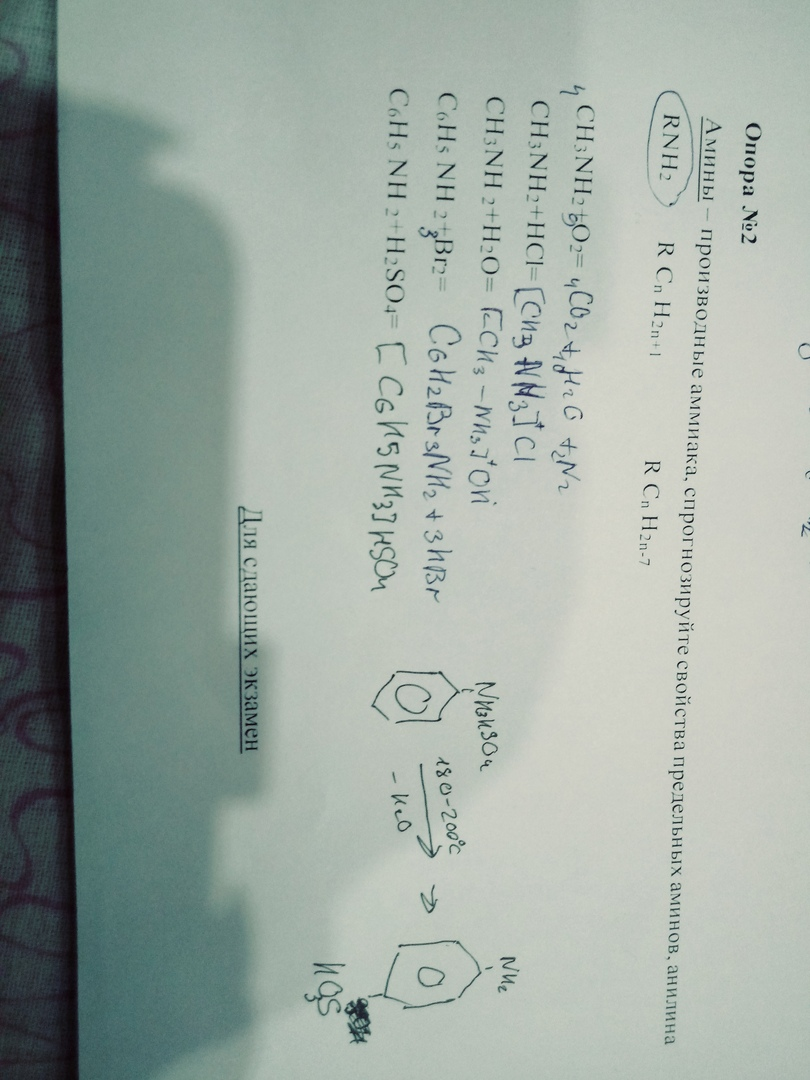 Опора №2
Амины – производные аммиака, спрогнозируйте свойства предельных аминов, анилина
RNH₂ R CₙH₂ₙ₊₁ R CₙH₂ₙ₋₇
4 CH₃NH₂+9O₂= 4CO₂ + 10H₂O + 2N₂
CH₃NH₂+HCl= [CH₃NH₃]⁺Cl
CH₃NH₂+H₂O= [CH₃–NH₃]⁺OH⁻
C₆H₅NH₂+3Br₂= C₆H₂Br₃NH₂ + 3HBr
C₆H₅NH₂+H₂SO₄= [C₆H₅NH₃]HSO₄
NH₃HSO₄
180-200°C
-H₂O
NH₂
HO₃S
Для сдающих экзамен